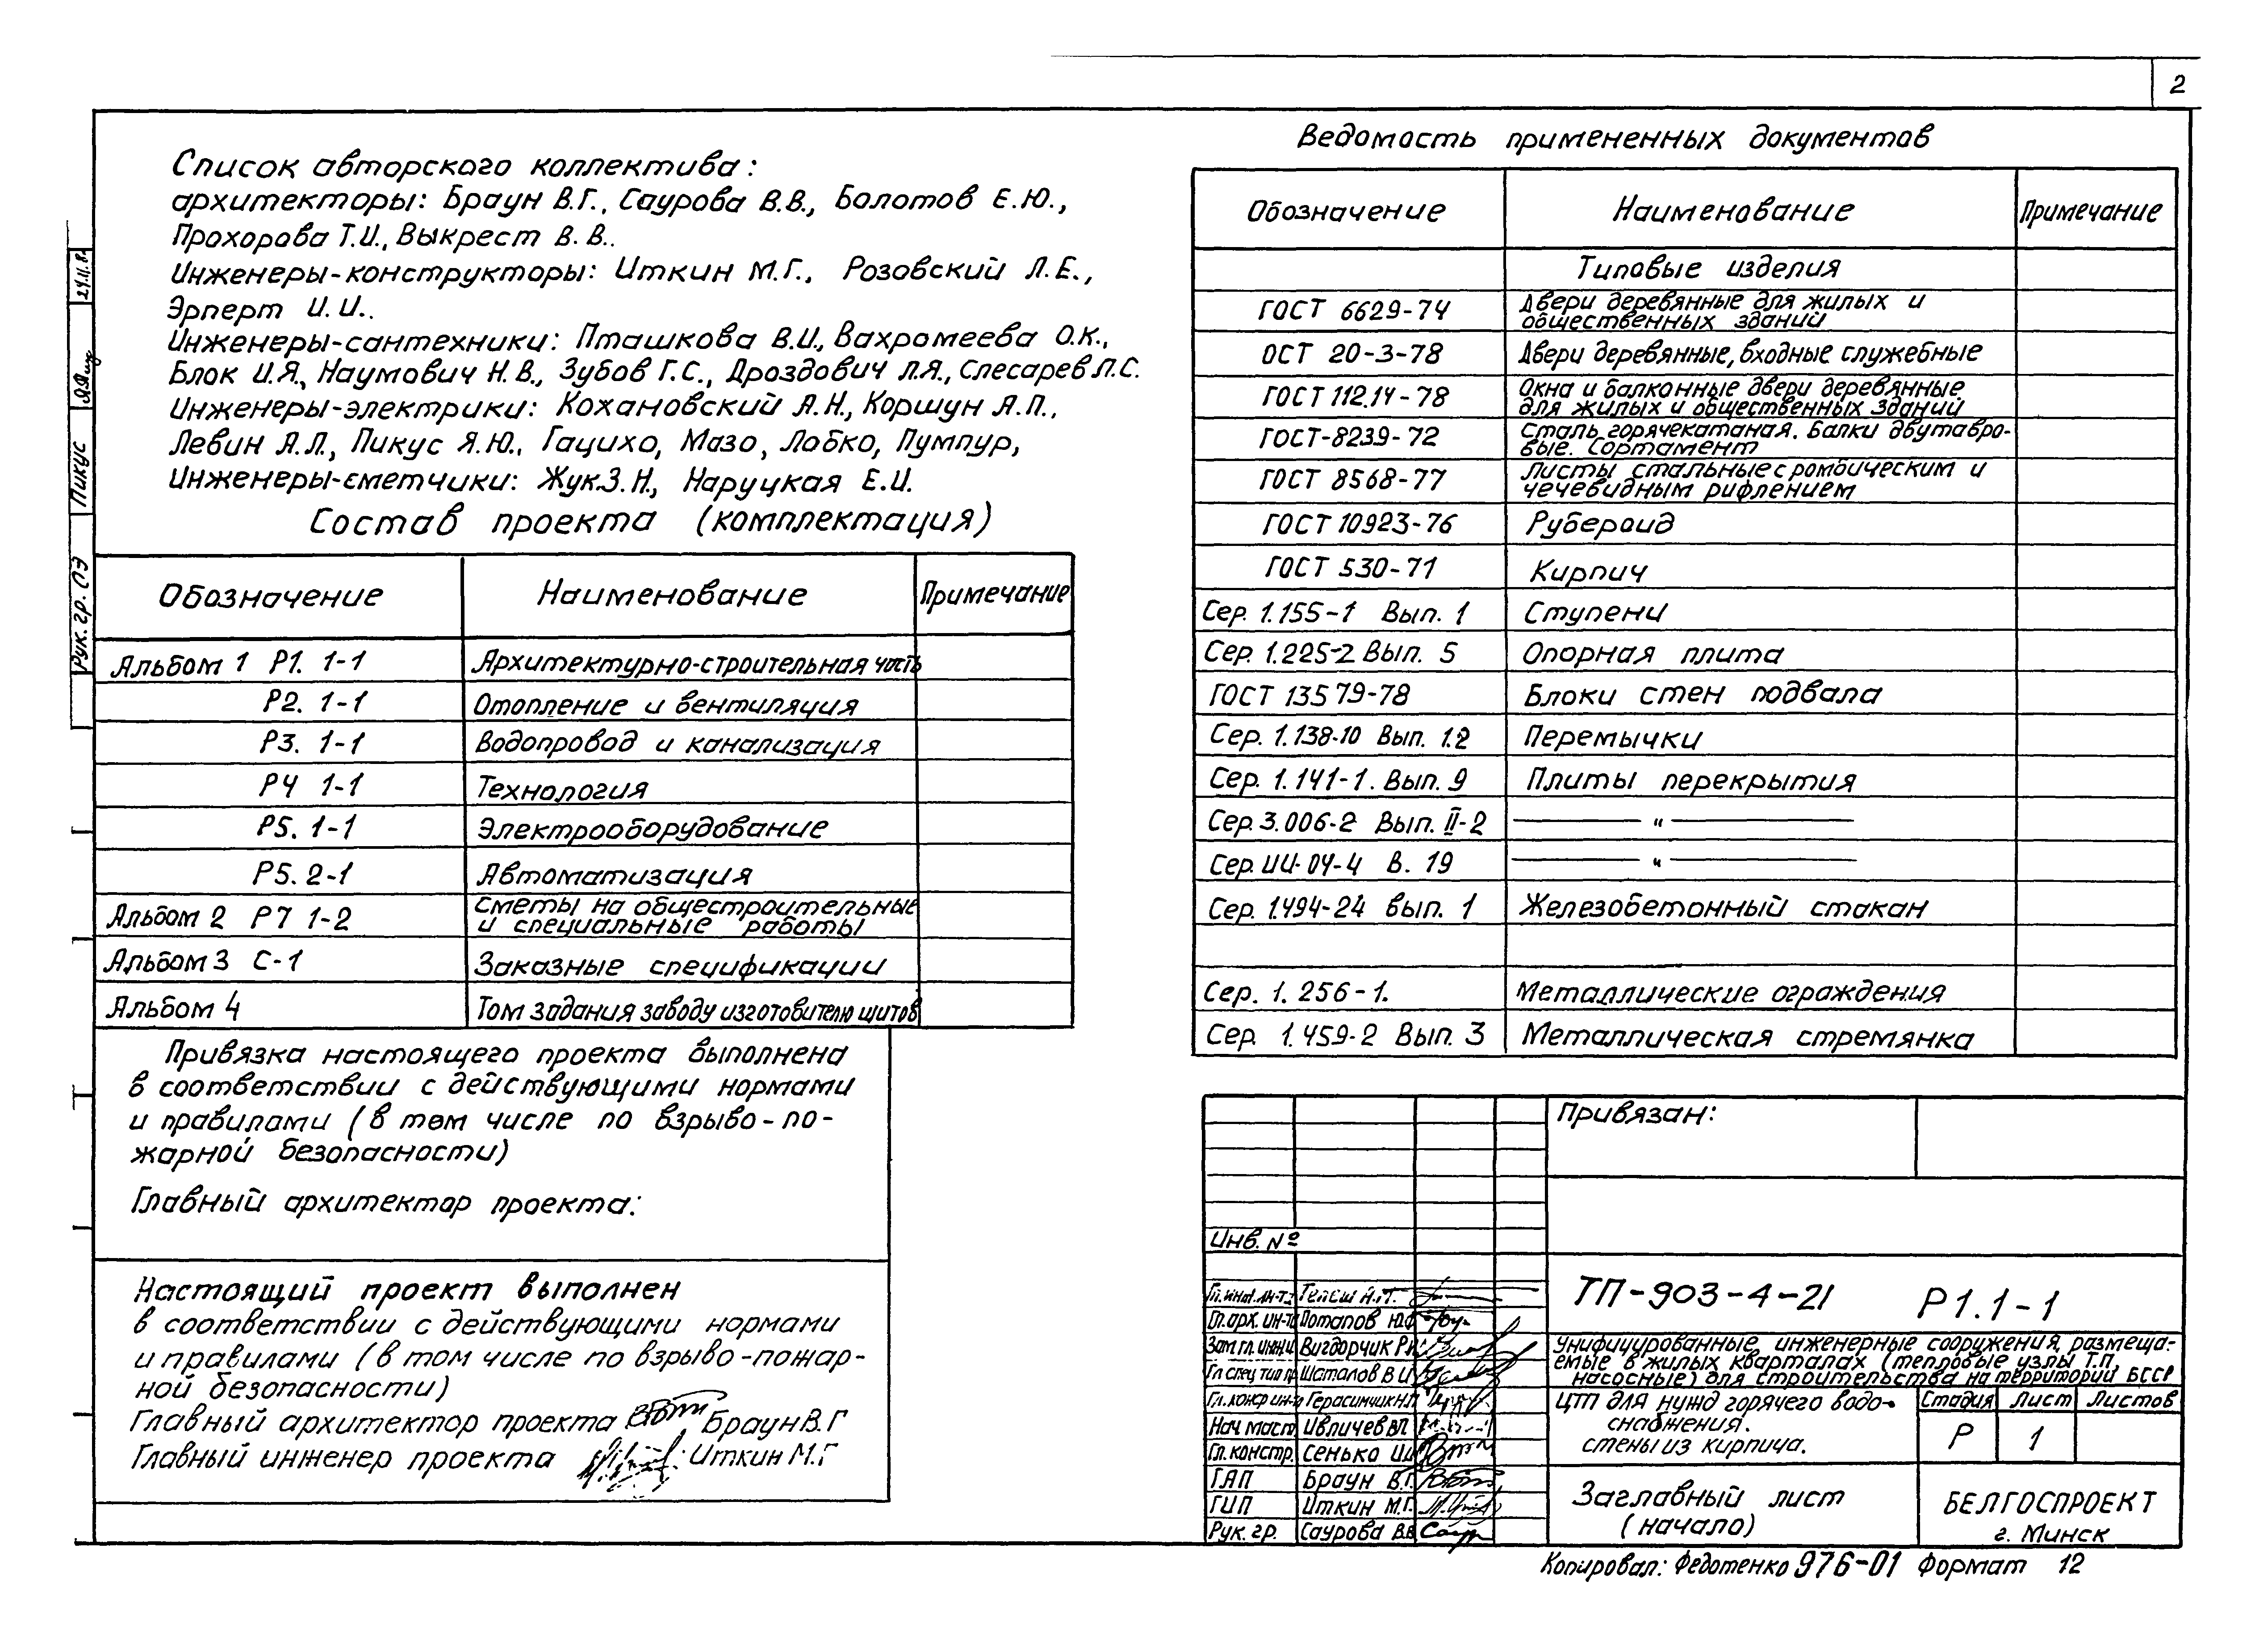 2
Список авторского коллектива:
архитекторы: Браун В.Г., Саурова В.В., Болотов Е.Ю.,
Прохорова Т.И., Выкрест В.В..
Инженеры-конструкторы: Иткин М.Г., Розовский Л.Е.,
Эрперт И.И..
Инженеры-сантехники: Пташкова В.И., Вахромеева О.К.,
Блок И.Я., Наумович Н.В., Зубов Г.С., Дроздович Л.Я., Слесарев Л.С.
Инженеры-электрики: Кохановский А.Н., Коршун А.П.,
Левин А.Л., Пикус Я.Ю., Гацихо, Мазо, Лобко, Пумпур,
Инженеры-сметчики: Жук З.Н., Наруцкая Е.И.
Состав проекта (комплектация)
Обозначение Наименование Примечание
Альбом 1 Р1. 1-1 Архитектурно-строительная часть
Р2. 1-1 Отопление и вентиляция
Р3. 1-1 Водопровод и канализация
Р4 1-1 Технология
Р5. 1-1 Электрооборудование
Р5. 2-1 Автоматизация
Альбом 2 Р7 1-2 Сметы на общестроительные
и специальные работы
Альбом 3 С-1 Заказные спецификации
Альбом 4 Том задания заводу изготовителю щитов
Привязка настоящего проекта выполнена
в соответствии с действующими нормами
и правилами (в том числе по взрыво-по-
жарной безопасности)
Главный архитектор проекта:
Настоящий проект выполнен
в соответствии с действующими нормами
и правилами (в том числе по взрыво-пожар-
ной безопасности)
Главный архитектор проекта Браун В.Г
Главный инженер проекта Иткин М.Г
Рук. гр. ОЭ Пикус 24.11.8
Ведомость примененных документов
Обозначение Наименование Примечание
Типовые изделия
ГОСТ 6629-74 Двери деревянные для жилых и
общественных зданий
ОСТ 20-3-78 Двери деревянные, входные служебные
ГОСТ 112.14-78 Окна и балконные двери деревянные
для жилых и общественных зданий
ГОСТ-8239-72 Сталь горячекатаная. Балки двутавро-
вые. Сортамент
ГОСТ 8568-77 Листы стальные с ромбическим и
чечевидным рифлением
ГОСТ 10923-76 Рубероид
ГОСТ 530-71 Кирпич
Сер. 1.155-1 Вып. 1 Ступени
Сер. 1.225-2 Вып. 5 Опорная плита
ГОСТ 13579-78 Блоки стен подвала
Сер. 1.138-10 Вып. 1.2 Перемычки
Сер. 1.141-1. Вып. 9 Плиты перекрытия
Сер. 3.006-2 Вып. II-2 — " —
Сер. ИИ-04-4 В. 19 — " —
Сер. 1.494-24 вып. 1 Железобетонный стакан
Сер. 1. 256-1. Металлические ограждения
Сер. 1.459-2 Вып. 3 Металлическая стремянка
Привязан:
Инв. №
Гл. арх. ин-та Потапов Ю.
Зам. гл. инж. Вигдорчик Р.
Гл спец тип пр. Шаталов В И
Гл. констр ин-та Герасимчик Н
Нач маст. Ивличев
Гл. констр. Сенько И
ГАП Браун В.Г.
ГИП Иткин М.Г.
Рук. гр. Саурова В.В
ТП-903-4-21 Р1.1-1
Унифицированные инженерные сооружения, размеща-
емые в жилых кварталах (тепловые узлы Т.П,
насосные) для строительства на территории БССР
ЦТП для нужд горячего водо-
снабжения.
стены из кирпича.
Стадия Лист Листов
Р 1
Заглавный лист
(начало)
БЕЛГОСПРОЕКТ
г. Минск
Копировал: Федотенко 976-01 Формат 12